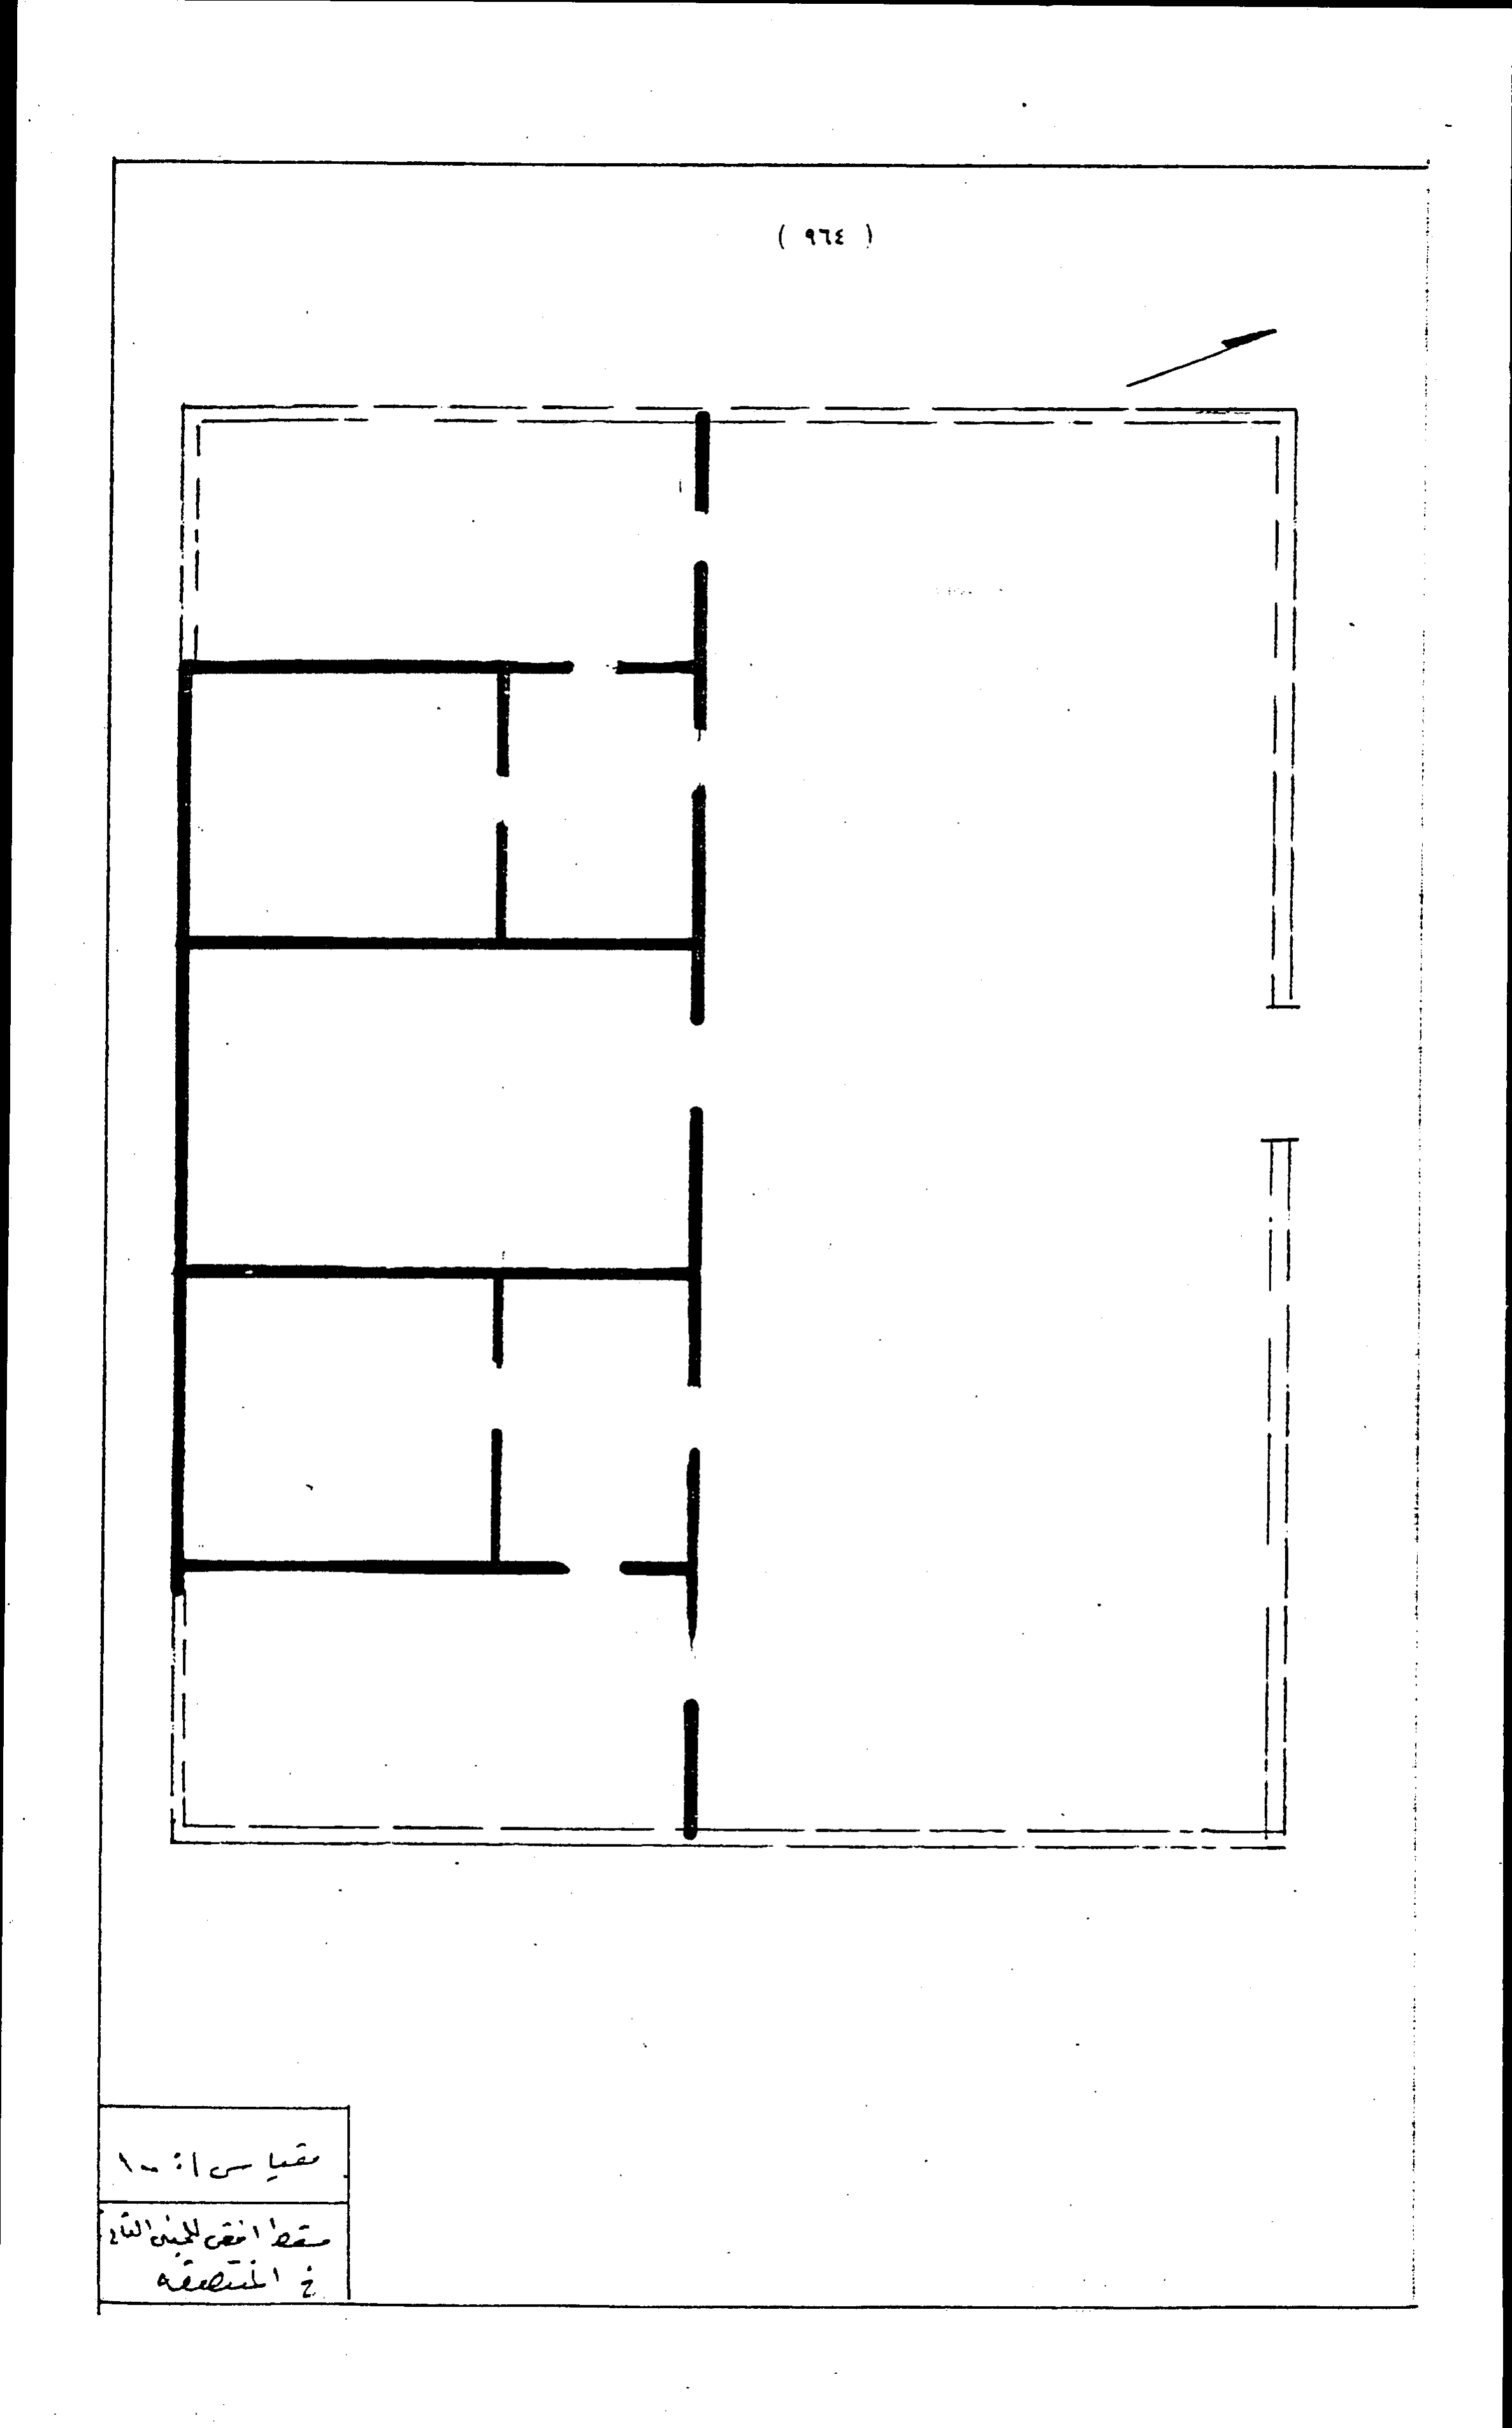 ( ٩٦٤ )
مقياس ١ : ١٠٠
مسقط افقي للمبنى الثاني
في المنتصفه